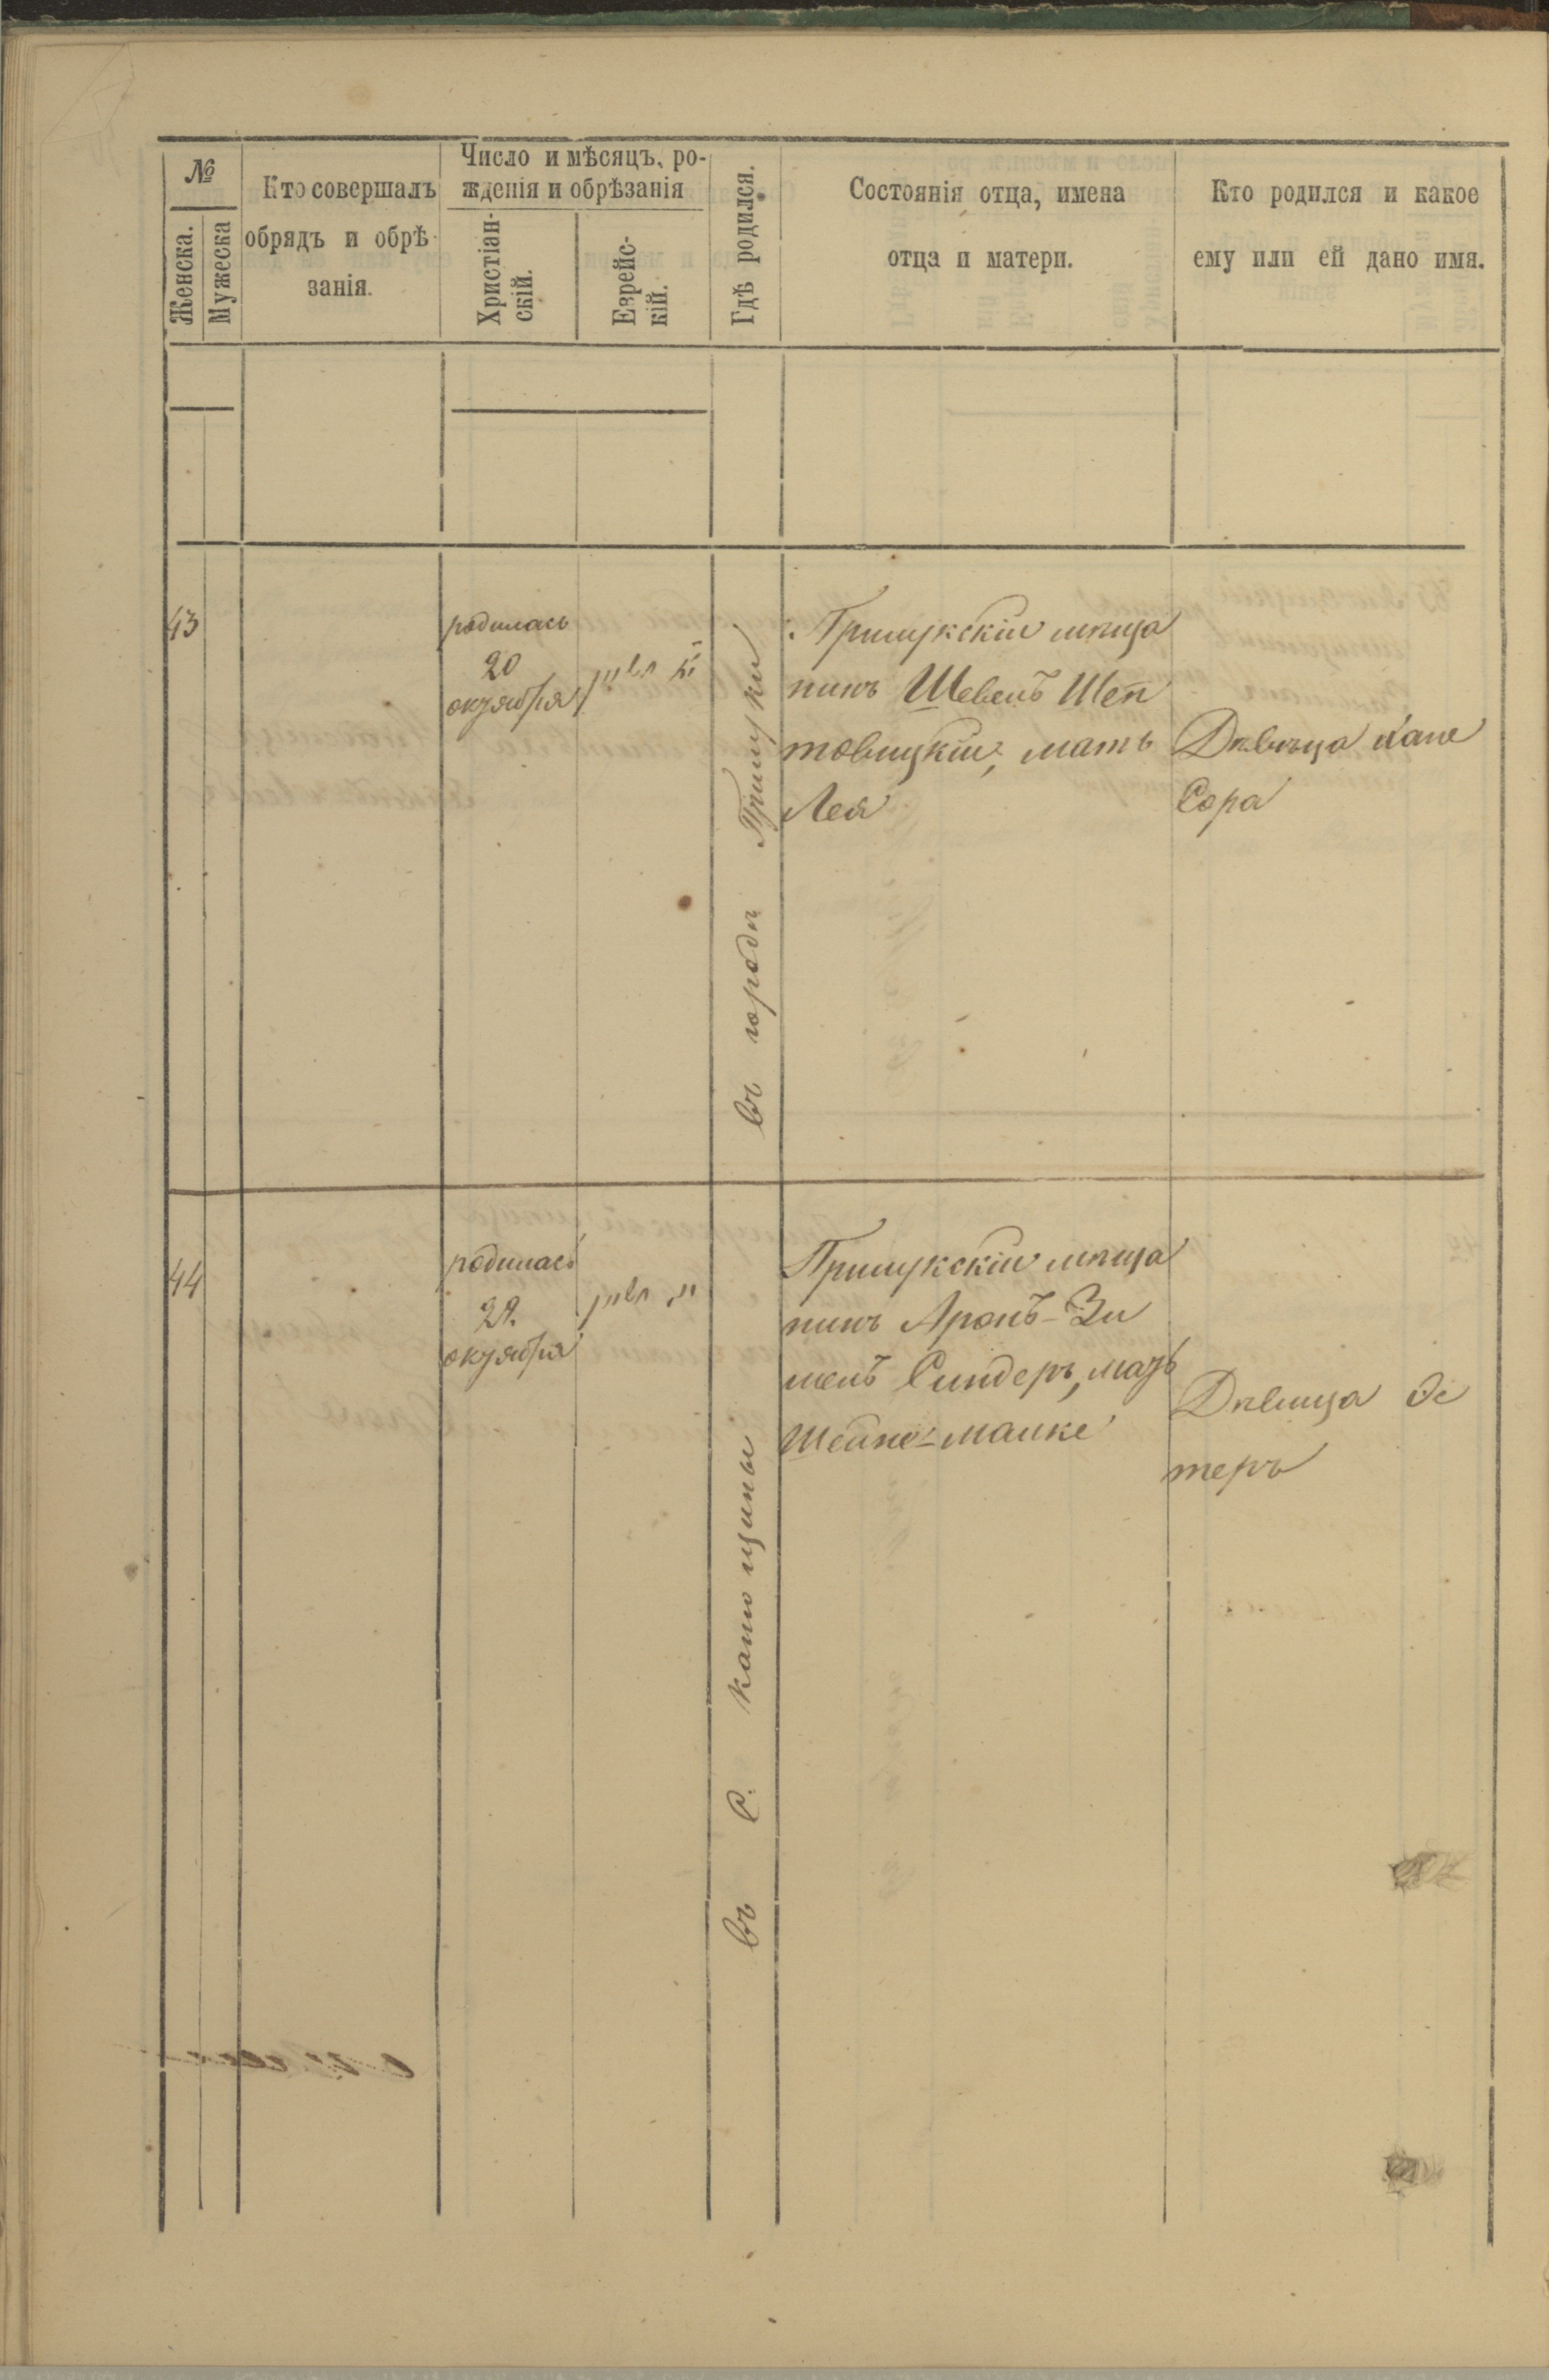 №
Женска.
Мужеска
Кто совершалъ
обрядъ и обрѣ-
занія.
Число и мѣсяцъ, ро-
жденія и обрѣзанія
Христіан-
скій.
Еврейс-
кій.
Гдѣ родился.
Состоянія отца, имена
отца и матери.
Кто родился и какое
ему или ей дано имя.
43
родилась
20
октября
въ городѣ Прилуки
Прилукскій мѣща
нинъ Шевелъ Шеп
товицкій, мать
Лея
Дѣвица Хане
Сора
44
родилась
29.
октября
въ с.
Прилукскій мѣща
нинъ Аронъ-Зи
менъ Синдеръ, мать
Шейне-Малке
Дѣвица Эс
теръ